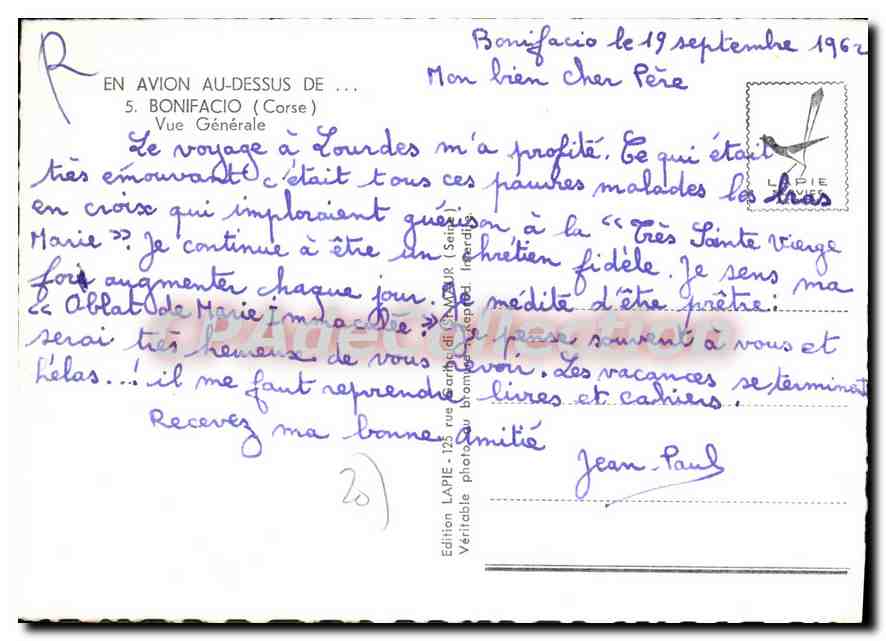 Bonifacio le 19 septembre 1962
Mon bien cher Père
EN AVION AU-DESSUS DE ...
5. BONIFACIO (Corse)
Vue Générale
LAPIE
Le voyage à Lourdes m'a profité. Ce qui était
très émouvant c'était tous ces pauvres malades les bras
en croix qui imploraient guérison à la « Très Sainte Vierge
Marie ». Je continue à être un chrétien fidèle. Je sens ma
foi augmenter chaque jour. Je médite d'être prêtre :
« Oblat de Marie Immaculée. » Je pense souvent à vous et
serai très heureux de vous revoir. Les vacances se terminent
hélas...! il me faut reprendre livres et cahiers.
Recevez ma bonne amitié
Jean-Paul
20)
Edition LAPIE - 125 rue Garibaldi (ST-MAUR (Seine)
Véritable photo au bromure - Reprod. Interdite.
CPAdeCollection